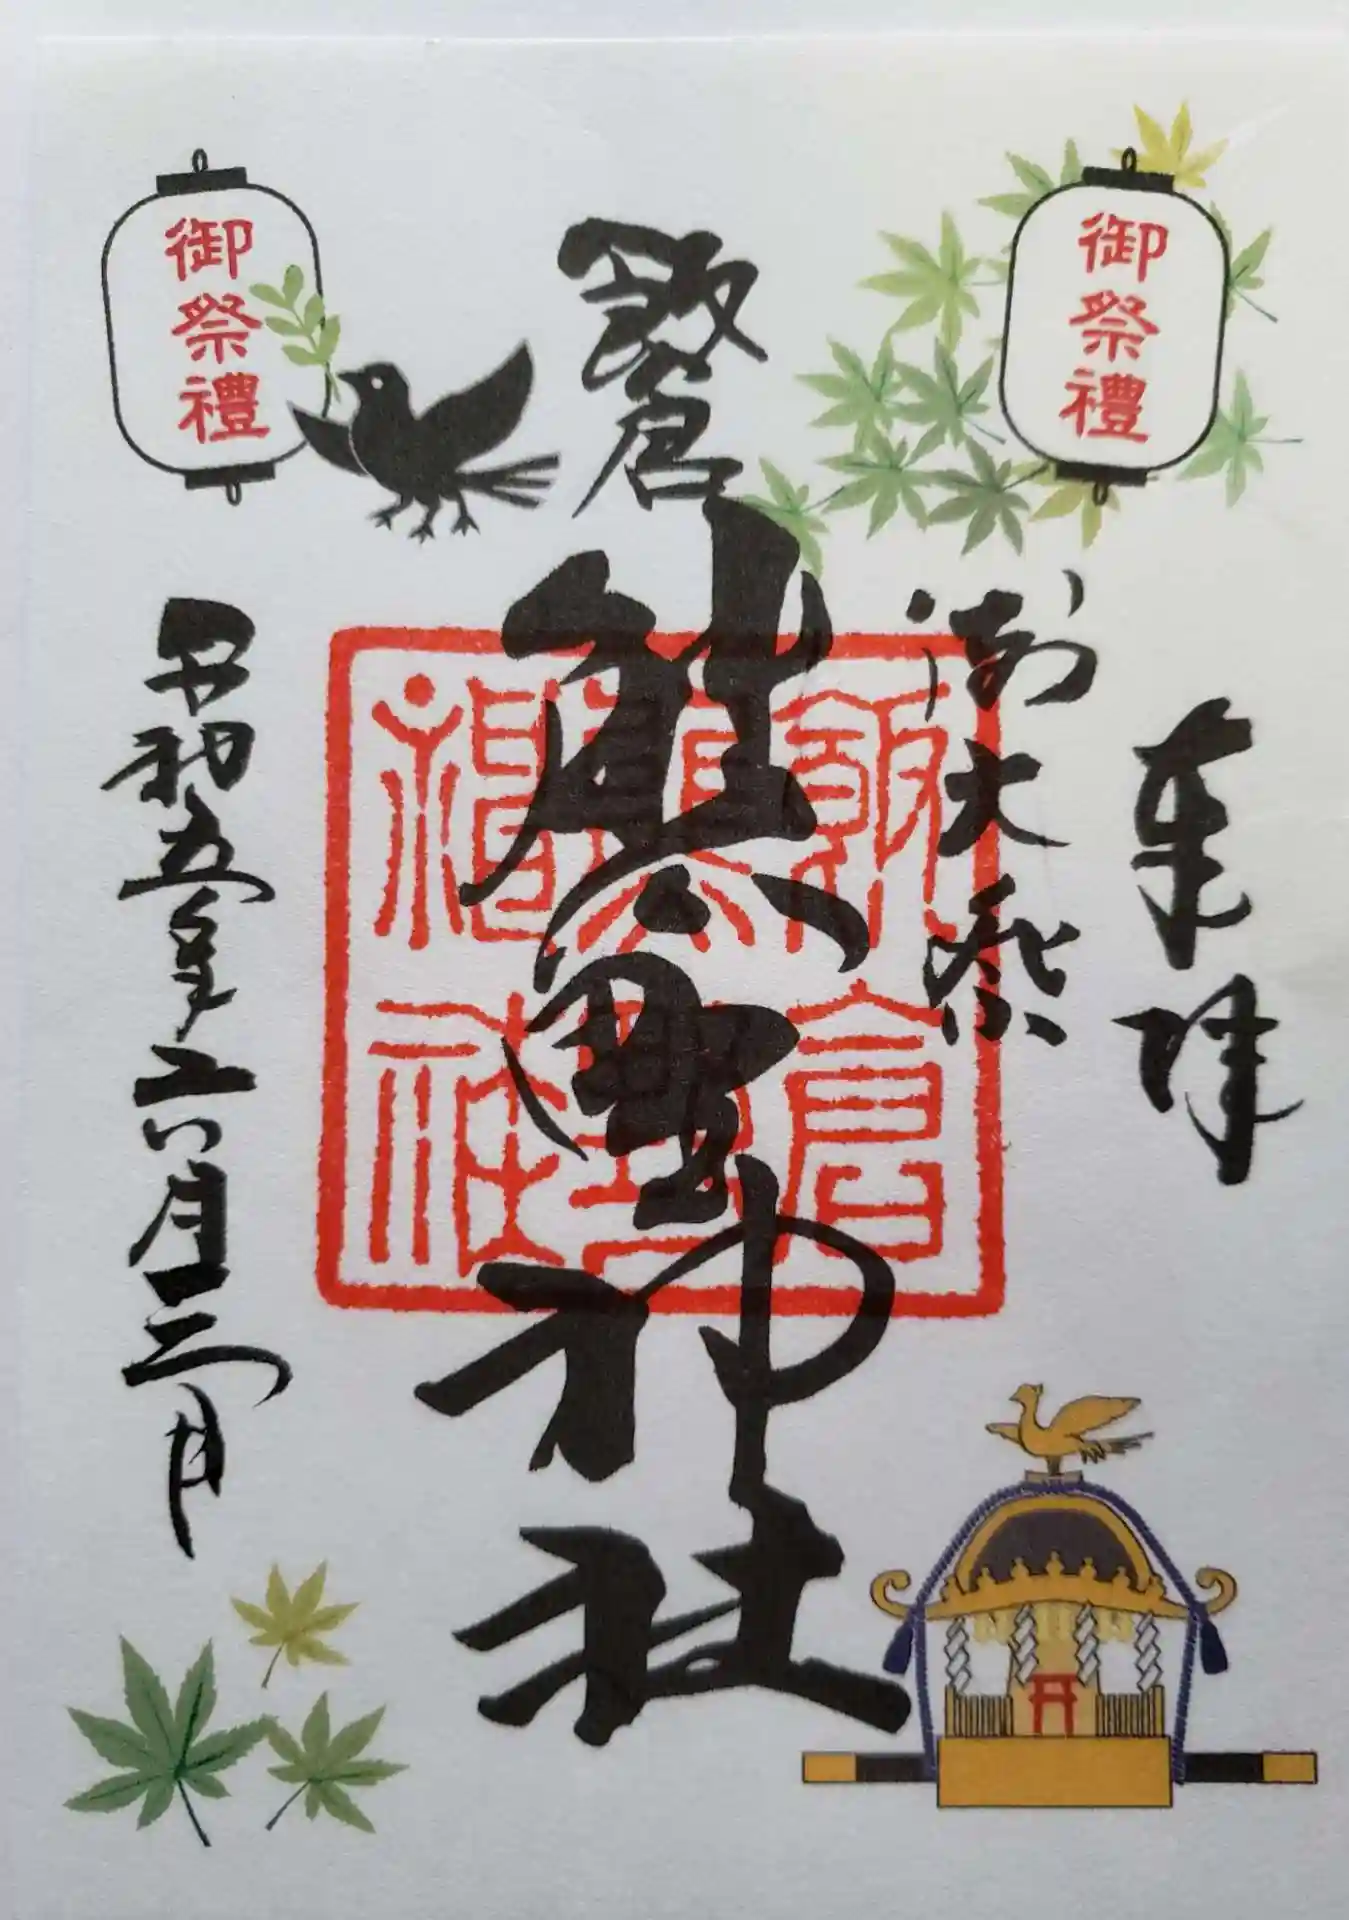 奉拝
例大祭
飯倉
熊野神社
令和五年六月三日
御祭禮
御祭禮
飯倉
熊野
神社